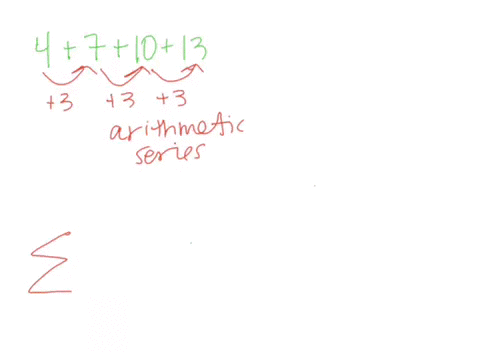 4+7+10+13
+3 +3 +3
arithmetic
series
Σ